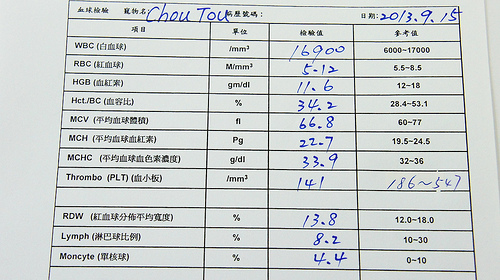 血球檢驗 寵物名: Chou Tou 病歷號碼: 日期: 2013.9.15
項目 單位 檢驗值 參考值
WBC (白血球) /mm³ 16900 6000~17000
RBC (紅血球) M/mm³ 5.12 5.5~8.5
HGB (血紅素) gm/dl 11.6 12~18
Hct./BC (血容比) % 34.2 28.4~53.1
MCV (平均血球體積) fl 66.8 60~77
MCH (平均血球血紅素) Pg 22.7 19.5~24.5
MCHC (平均血球血色素濃度) g/dl 33.9 32~36
Thrombo (PLT) (血小板) /mm³ 141 186~547
RDW (紅血球分佈平均寬度) % 13.8 12.0~18.0
Lymph (淋巴球比例) % 8.2 10~30
Moncyte (單核球) % 4.4 0~10